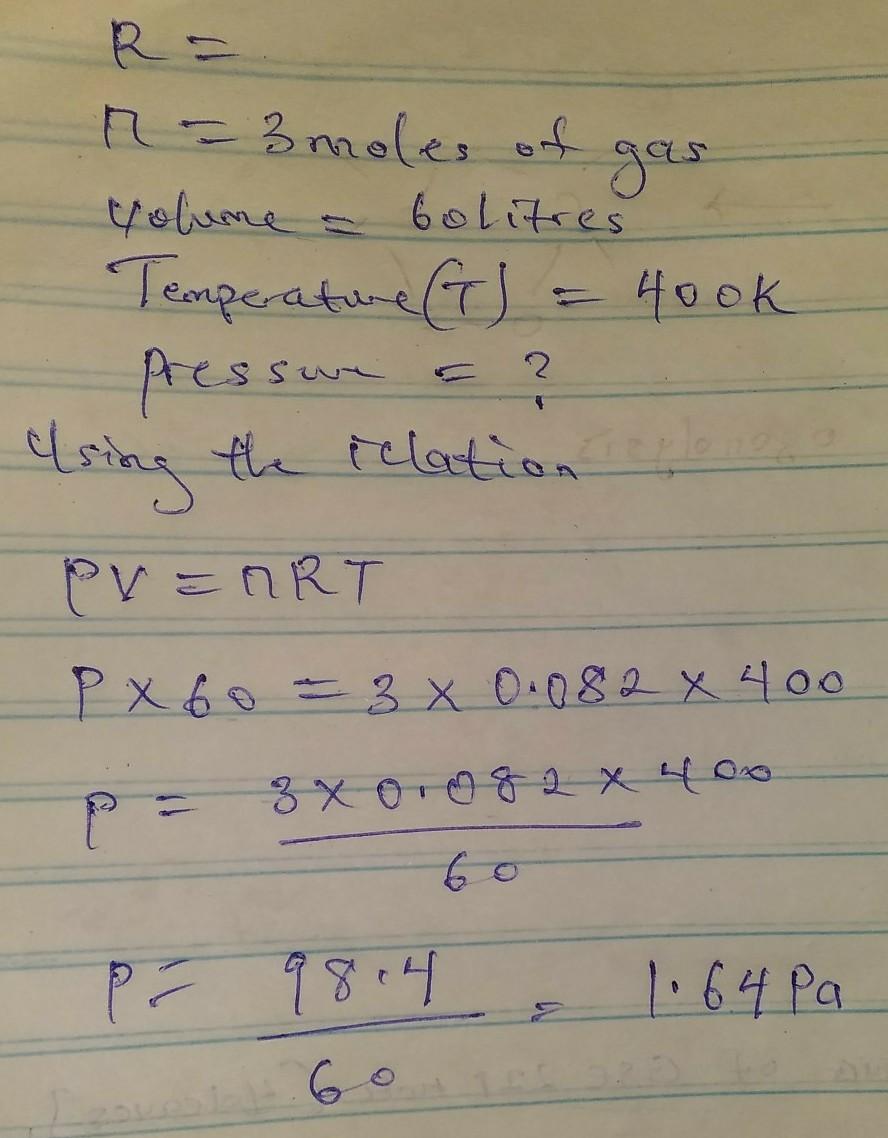 R =
n = 3 moles of gas
Volume = 60 litres
Temperature (T) = 400K
Pressure = ?
Using the relation
PV = nRT
P x 60 = 3 x 0.082 x 400
P = 3 x 0.082 x 400
60
P = 98.4 = 1.64 Pa
60